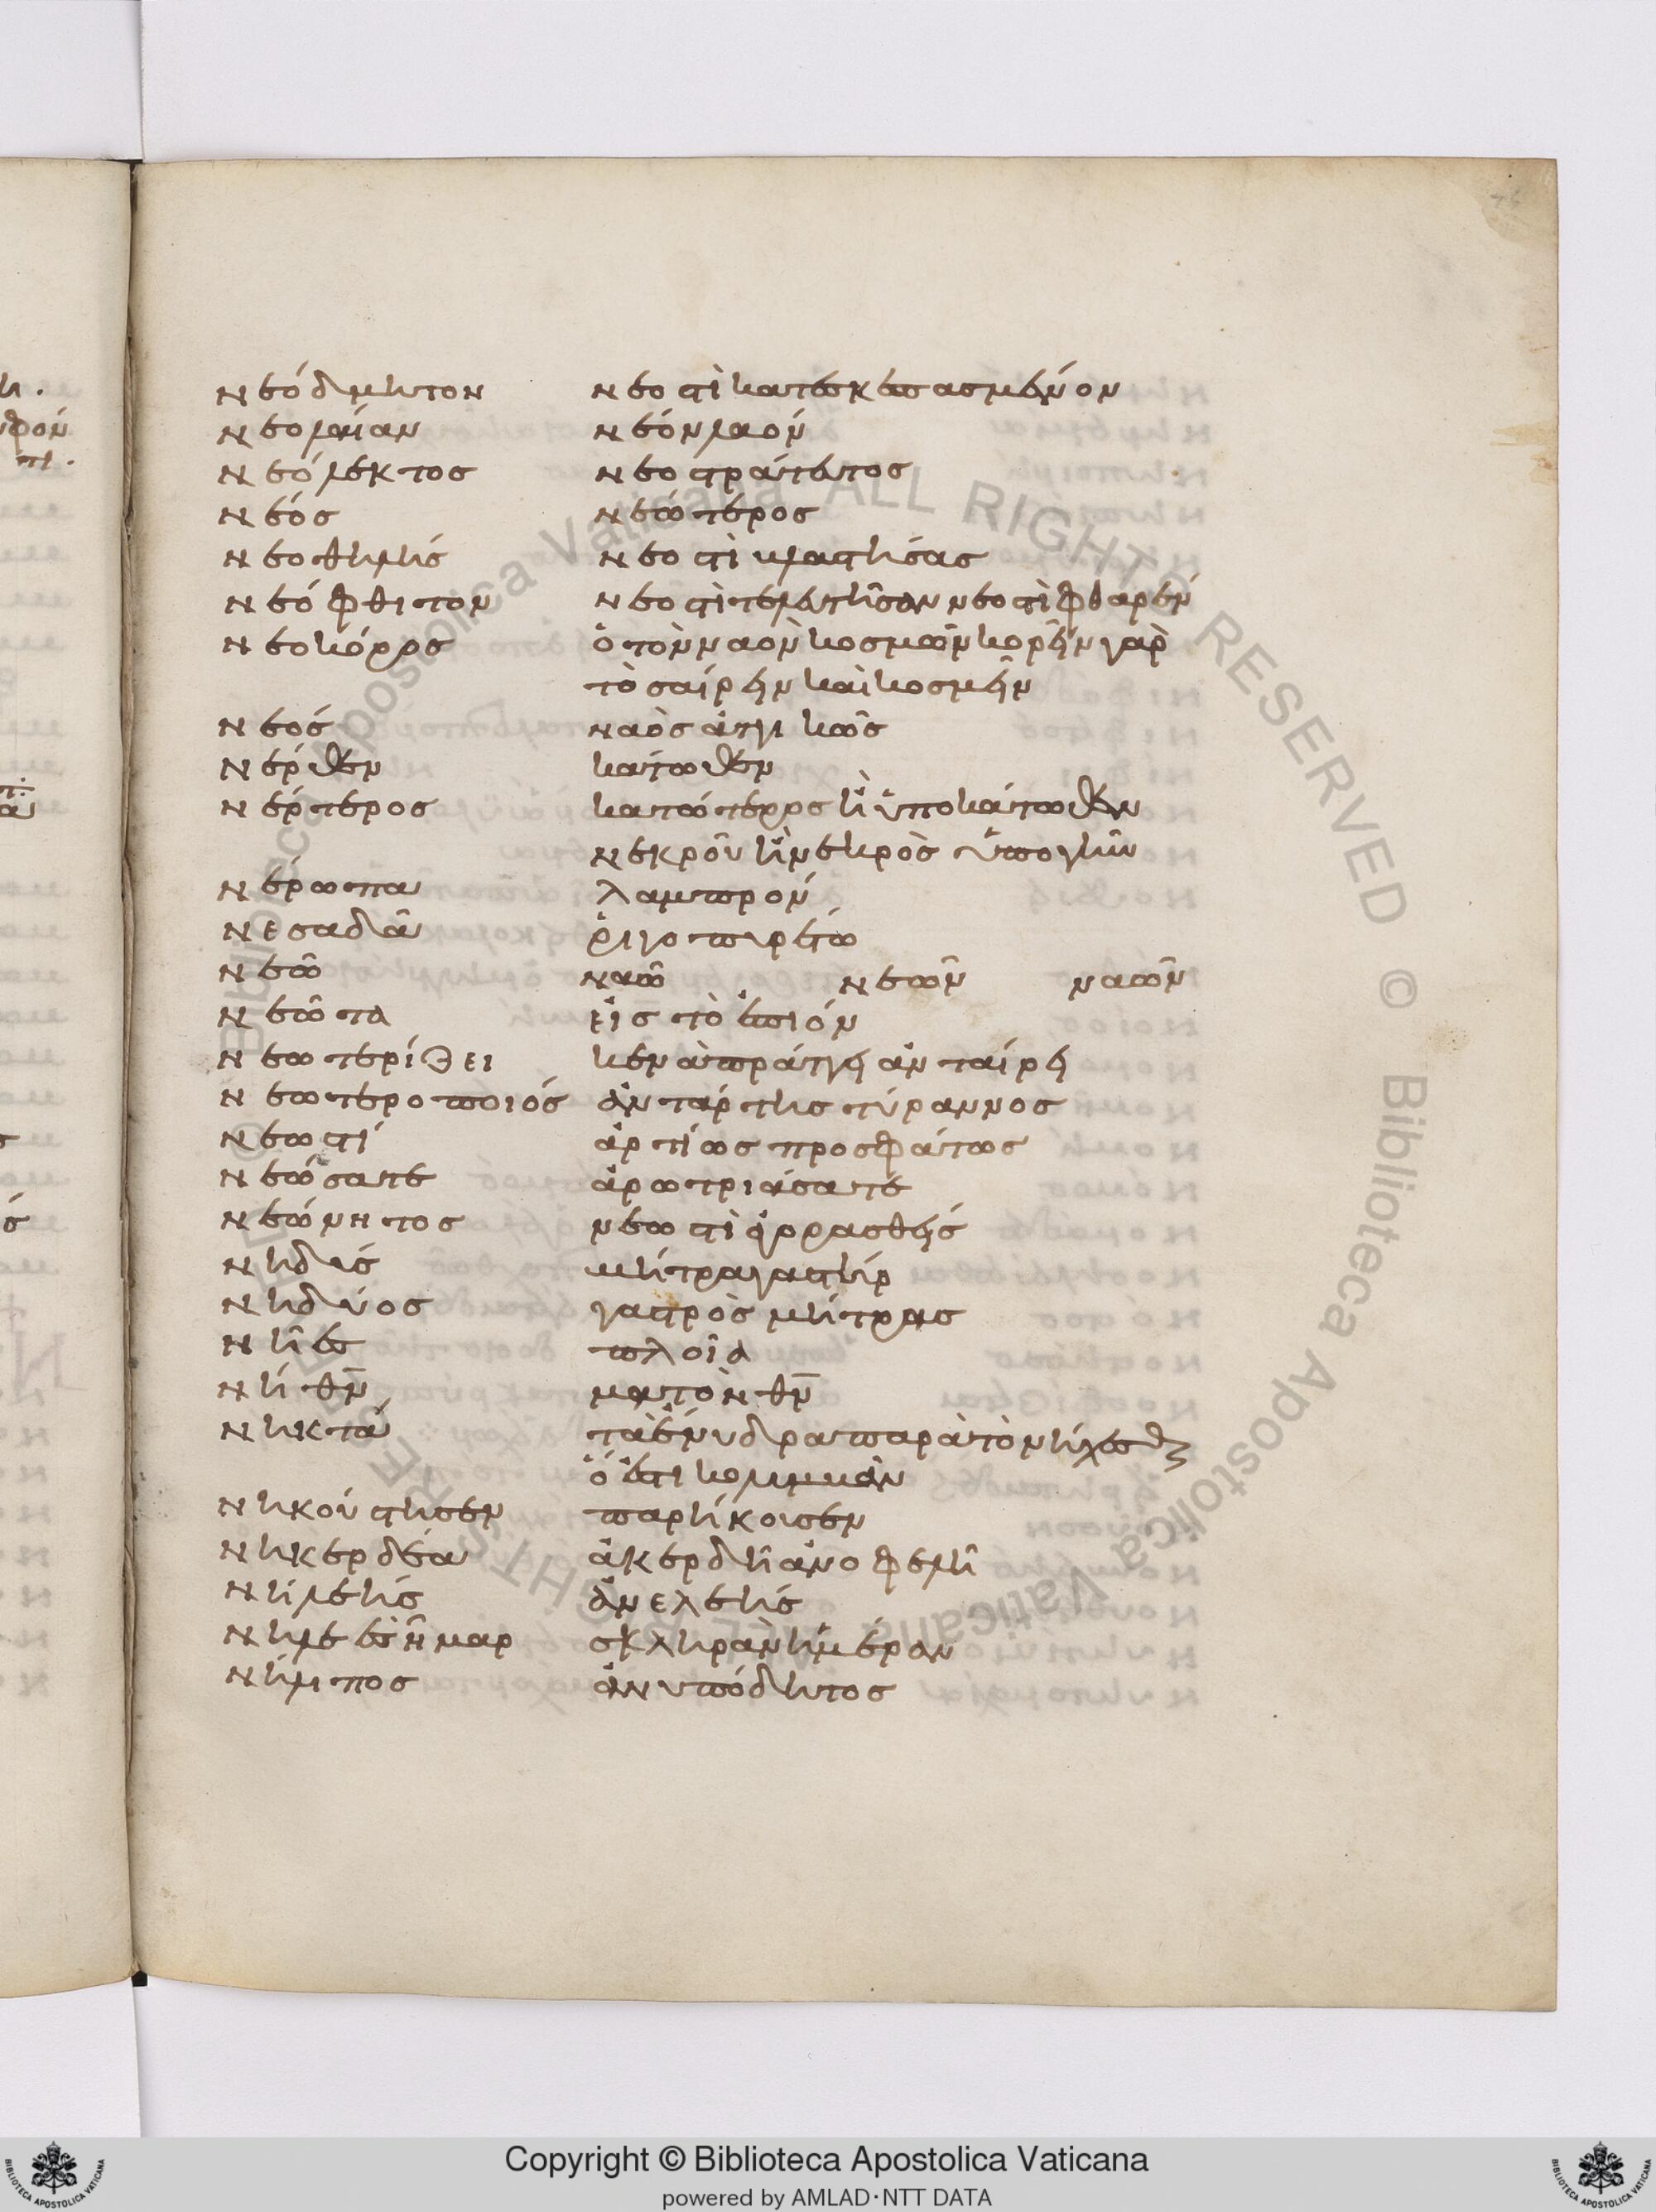 νεόδμητον νεοστὶ κατεσκεασασμένον
νεολαίαν νεόνλαόν
νεόλεκτος νεοστράτευτος
νεός νεώτερος
νεοθηλής νεοστὶ βλαστήσας
νεόφθιτον νεοστὶ τελευτῆσαν νεοστὶ φθαρέν
νεοκόρος ὁ τὸν ναὸν κοσμῶν κορεῖν γαρ
τὸ σαίρειν καὶ κοσμεῖν
νεός ναὸς ἀττικῶς
νέρθεν κάτωθεν
νέρτερος κατώτερος ἢ ὑποκάτωθεν
νεκροῦ ἢ νεκρὸς ὑπογῆν
νέρωπα λαμπρόν
νεσαδιᾶ ῥιγοπυρέτω
νεῶ ναῶ νεῶν ναῶν
νεῶτα εἰς τὸ ἐπιόν
νεωτερίζει κενὰ πράττει ἀνταίρει
νεωτεροποιός ἀντάρτης τύραννος
νεωστί ἀρτίως προσφάτως
νεώσατε ἀροτριάσατε
νεώνητος νεωστὶ ἀγορασθείς
νηδύς μήτρα γαστήρ
νηδύος γαστρὸς μήτρας
νῆες πλοῖα
νήθειν
νηκτά τὰ ἔνυδρα παρὰ τὸ νήχεσθαι
ὅ ἐστι κολυμβᾶν
νηκούστησεν παρήκουσεν
νηκερδέα ἀκερδῆ ἀνοφελῆ
νηλεής ἀνελεής
νηλεὲς ἦμαρ σκληρὰν ἡμέραν
νήλιπος ἀνυπόδητος
Copyright © Biblioteca Apostolica Vaticana
powered by AMLAD·NTT DATA